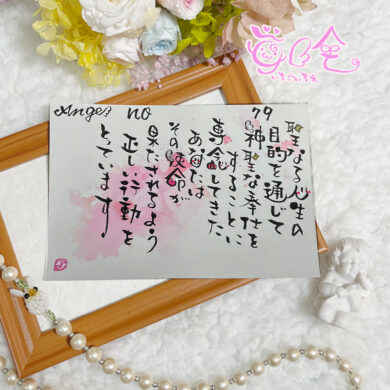 Angel no 79
聖なる人生の
目的を通じて
神聖な奉仕を
することに
専念してきた
あなたは
その使命が
果たされるよう
正しい行動を
とっています!